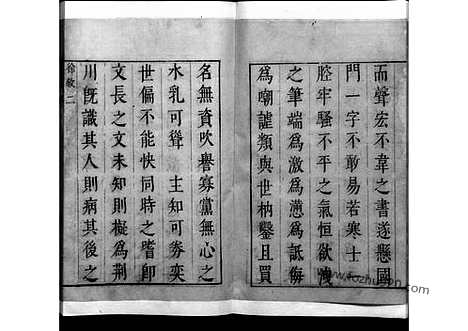 而聲宏不韋之書遂懸國
門一字不敢易若寒士一
腔牢騷不平之氣恒欲洩
之筆端為激為懣為詆侮
為嘲謔類與世枘鑿且買
名無資吹譽寡黨無心之
水乳可聳 主知可券奕
世偏不能快同時之嗜即
文長之文未知則擬為荆
川既識其人則病其後之
徐敘 二